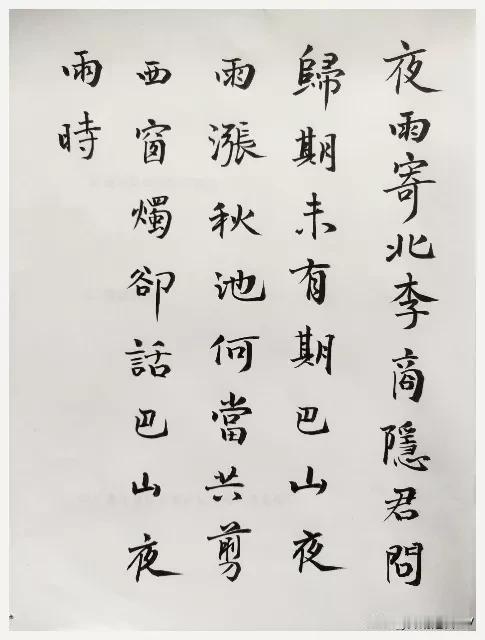 夜雨寄北李商隱君問
歸期未有期巴山夜
雨漲秋池何當共剪
西窗燭卻話巴山夜
雨時